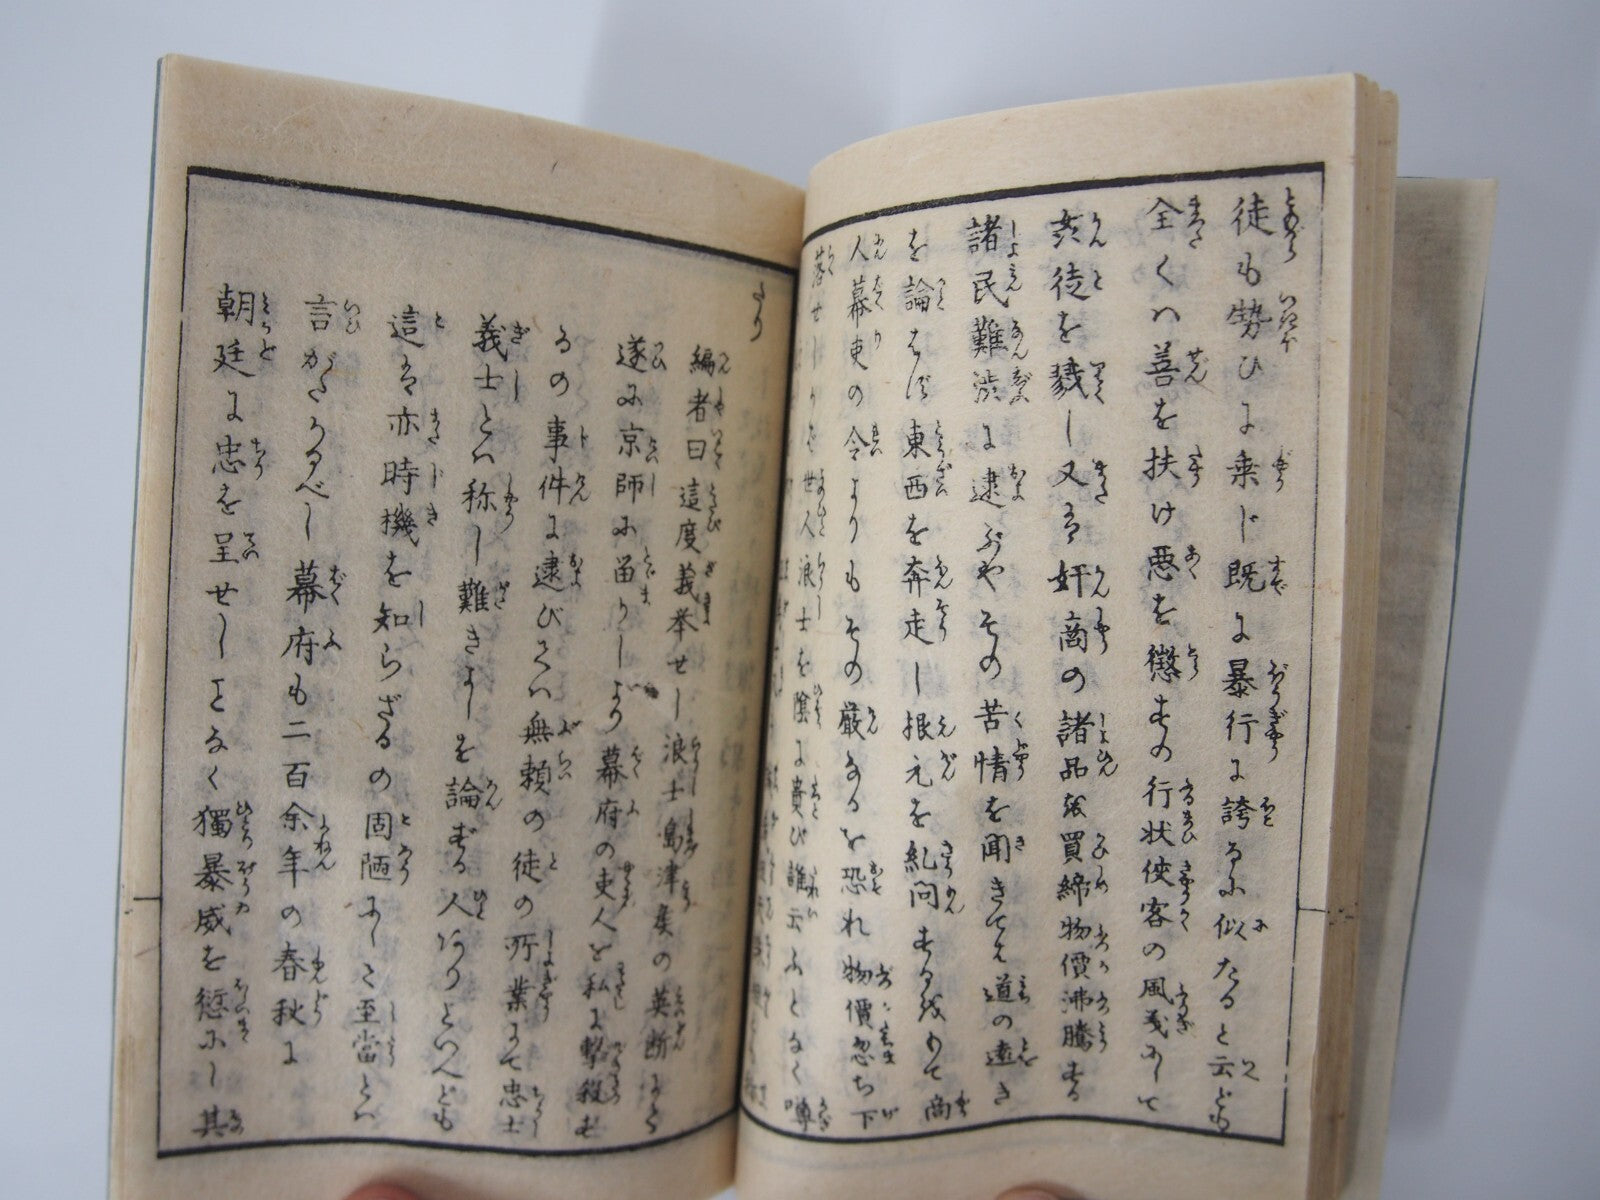 徒も勢ひに乗じ既に暴行に誇るに似たると云ども
全くハ善を扶け悪を懲すの行状侠客の風義にして
姦徒を戮し又は奸商の諸品を買締物價沸騰する
諸民難渋に逮ぶやその苦情を聞きてハ道の遠き
を論ぜず東西を奔走し根元を糺問するを以て商
人幕吏の令よりもその厳なるを恐れ物價忽ち下
落せしりバ世人浪士を陰に貴び誰云ふとなく噂
たり
編者曰這度義挙せし浪士島津矦の英断により
遂に京師に留りしより幕府の吏人を私に撃殺せ
るの事件に逮びてハ無頼の徒の所業にて忠士
義士とハ称し難きよしを論ずる人ありといへども
這は亦時機を知らざるの固陋にして至當とハ
言がたかるべし幕府も二百余年の春秋に
朝廷に忠を呈せしことなく獨暴威を恣にし其